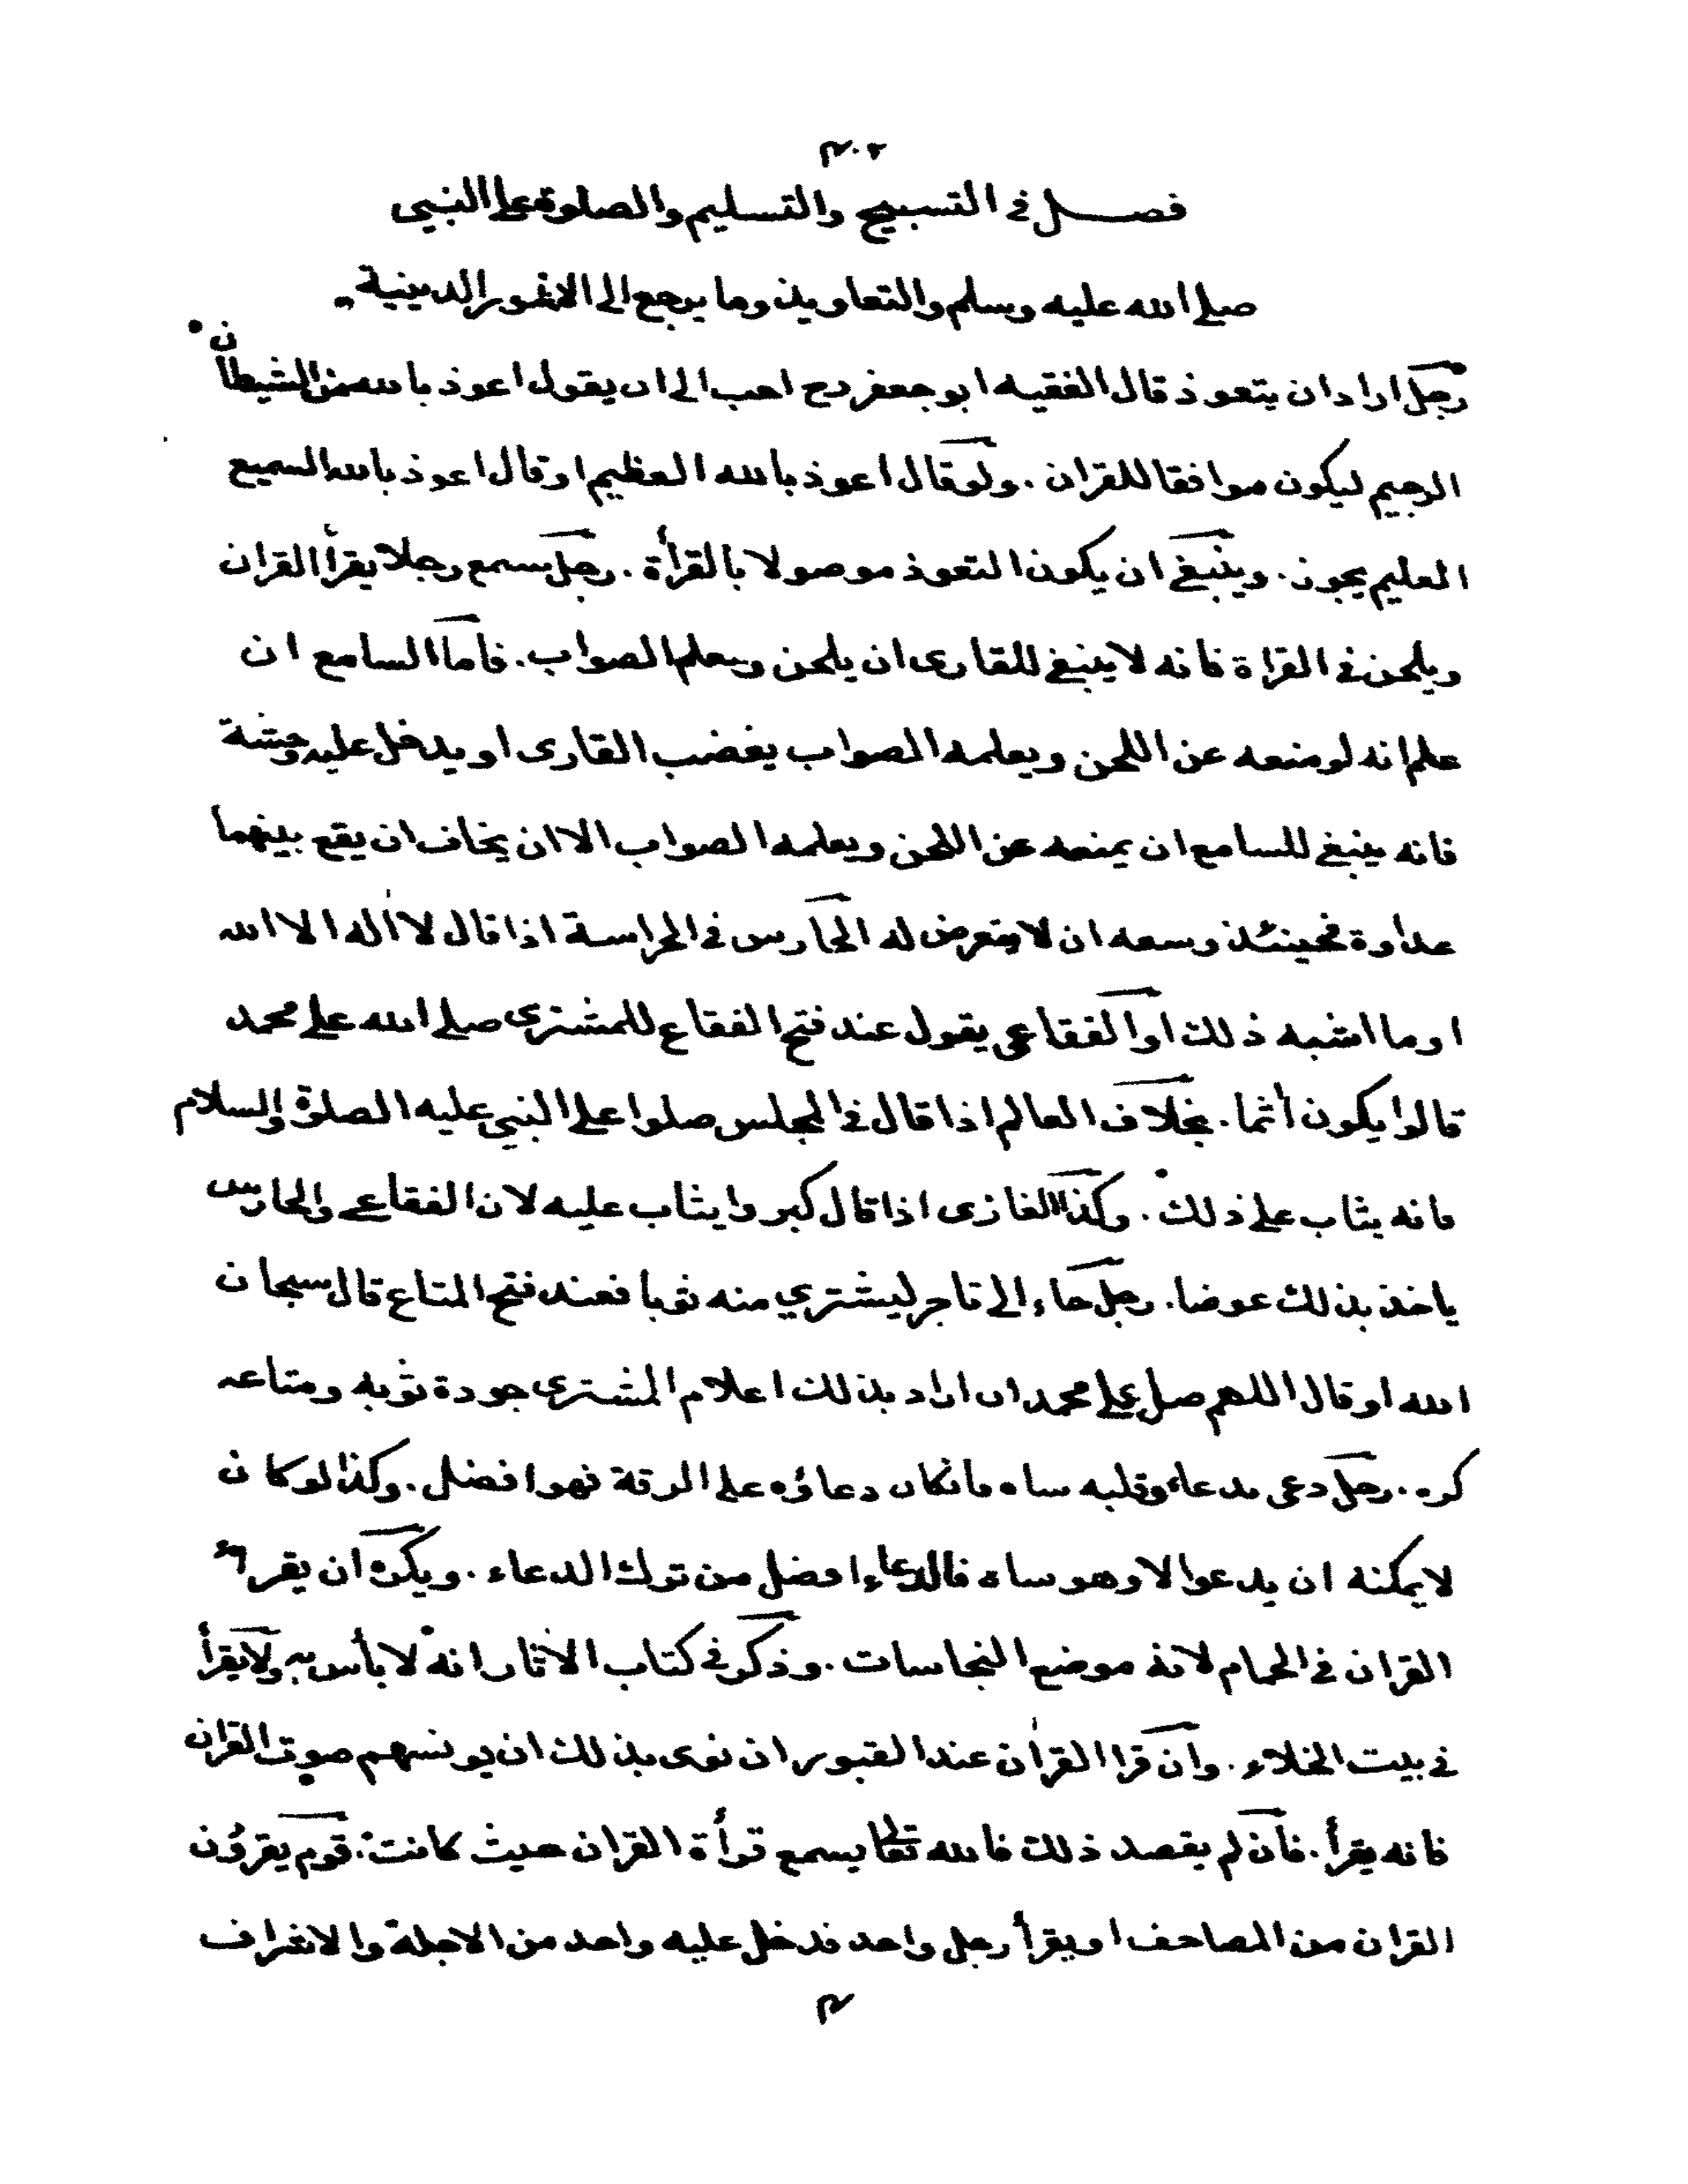 ٣٠٢
فصل في التسبيح والتسليم والصلوة على النبي
صلى الله عليه وسلم والتعاويذ وما يرجع الى الامور الدينية
رجل اراد ان يتعوذ قال الفقيه ابو جعفر رح احب الى ان يقول اعوذ بالله من الشيطان
الرجيم ليكون موافقا للقران . ولو قال اعوذ بالله العظيم او قال اعوذ بالله السميع
العليم يجوز . وينبغي ان يكون التعوذ موصولا بالقرأة . رجل سمع رجلا يقرأ القران
ويلحن في القراة فانه لا ينبغي للقارى ان يلحن ويعلم الصواب . فاما السامع ان
علم انه لو منعه عن اللحن ويعلمه الصواب يغضب القارى او يدخل عليه وحشة
فانه ينبغي للسامع ان يمنعه عن اللحن ويعلمه الصواب الا ان يخاف ان يقع بينهما
عداوة فحينئذ وسعه ان لا يتعرض له الحارس في الحراسة اذا قال لا اله الا الله
او ما اشبه ذلك او الفقاعي يقول عند فتح الفقاع للمشترى صلى الله على محمد
قالوا يكون أثما . بخلاف العالم اذا قال في المجلس صلوا على النبي عليه الصلوة والسلام
فانه يثاب على ذلك . وكذا الغازى اذا قال كبروا يثاب عليه لان الفقاعي والحارس
ياخذ بذلك عوضا . رجل جاء الى تاجر ليشتري منه ثوبا فعند فتح المتاع قال سبحان
الله او قال اللهم صل على محمد ان اراد بذلك اعلام المشترى جودة ثوبه ومتاعه
كره . رجل دعى بدعاء وقلبه ساه فانكان دعاؤه على الرقة فهو افضل . وكذا لو كان
لا يمكنه ان يدعو الا وهو ساه فالدعاء افضل من ترك الدعاء . ويكره ان يقرأ
القران في الحمام لانه موضع النجاسات . وذكر في كتاب الاثار انه لا بأس به ولا يقرأ
في بيت الخلاء . وان قرا القران عند القبور ان نوى بذلك ان يونسهم صوت القران
فانه يقرأ . فان لم يقصد ذلك فالله تعالى يسمع قرأة القران حيث كانت . قوم يقرؤن
القران من المصاحف او يقرأ رجل واحد فدخل عليه واحد من الاجلة والاشراف